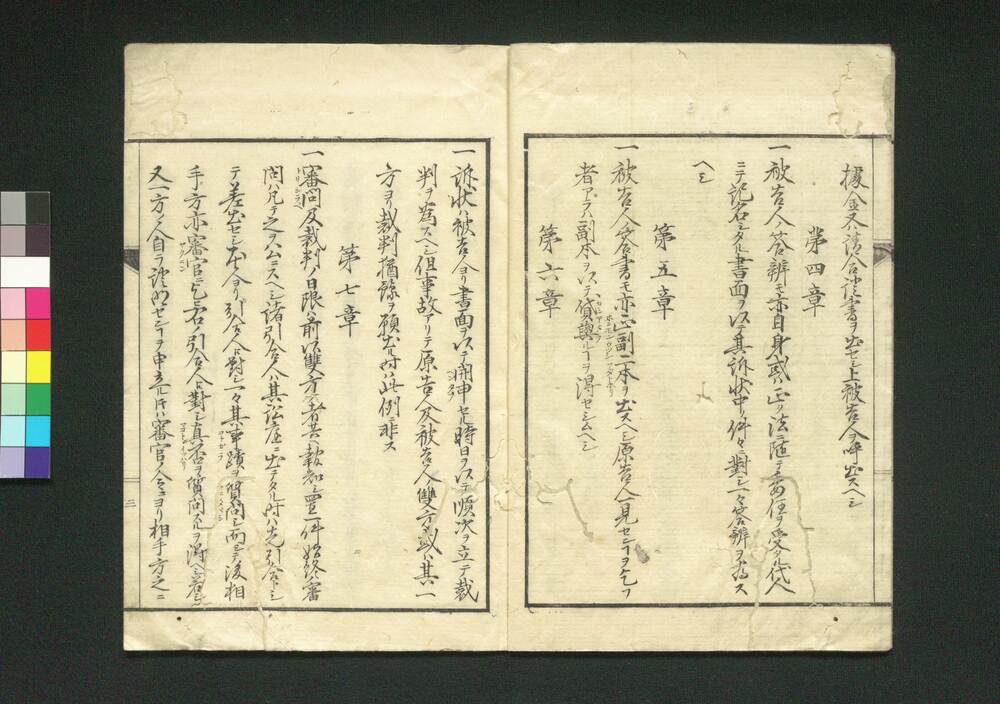 據金又ハ請合証書ヲ出セシ上被告人ヲ呼出スヘシ
第四章
一被告人ノ答辨モ亦自身或ハ正ク法ニ隨テ委任ヲ受タル代人
ニテ記名シタル書面ヲ以テ其訴状中ノ件々ニ對シ一々答辨ヲ為ス
ヘシ
第五章
一被告人ノ答書モ亦正副二本ヲ出スヘシ原告人一見セン事ヲ乞フ
者アラハ副本ヲ以テ貸與ルヿヲ得セシムヘシ
第六章
一訴状ハ被告人ヨリ書面ヲ以テ開申セル時日ヲ以テ順次ヲ立テ裁
判ヲ為スヘシ但事故アリテ原告人及被告人ノ雙方或ハ其一
方ヨリ裁判猶豫ヲ願出ル片ハ此例ニ非ス
第七章
一審問及裁判ノ日限ハ前以雙方ノ者共ヘ報知シ置一件始終ノ審
問ハ凡テ之ヲ公ニスヘシ諸引合人ハ其訟庭ニ出テタル片ハ先引合トシ
テ差出セシ本人ヨリ引合人ニ對シ一々其事蹟ヲ質問シ而シテ後相
手方亦審官ニ乞テ右ノ引合人ニ對シ真否ヲ質問スルヲ得ヘシ若シ
又一方ノ人自ラ證明セン事ヲ申立ル片ハ審官ノ命ニヨリ相手方之ニ
二